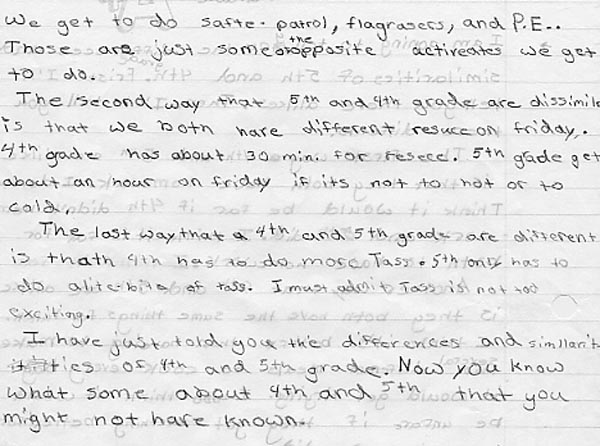 We get to do safte. patrol, flagrasers, and P.E..
Those are just some the opposite activeates we get
to do.
The second way that 5th and 4th grade are dissimile
is that we both hare different resuce on friday.
4th gade has about 30 min. for resece. 5th gade get
about an hour on friday if its not to hot or to
cold.
The last way that a 4th and 5th grade are different
is thath 4th has to do more Tass. 5th only has to
do alite bite of tass. I must admit Tass is not too
exciting.
I have just told you the differences and simllarit
ties of 4th and 5th grade. Now you know
what some about 4th and 5th that you
might not hare known.